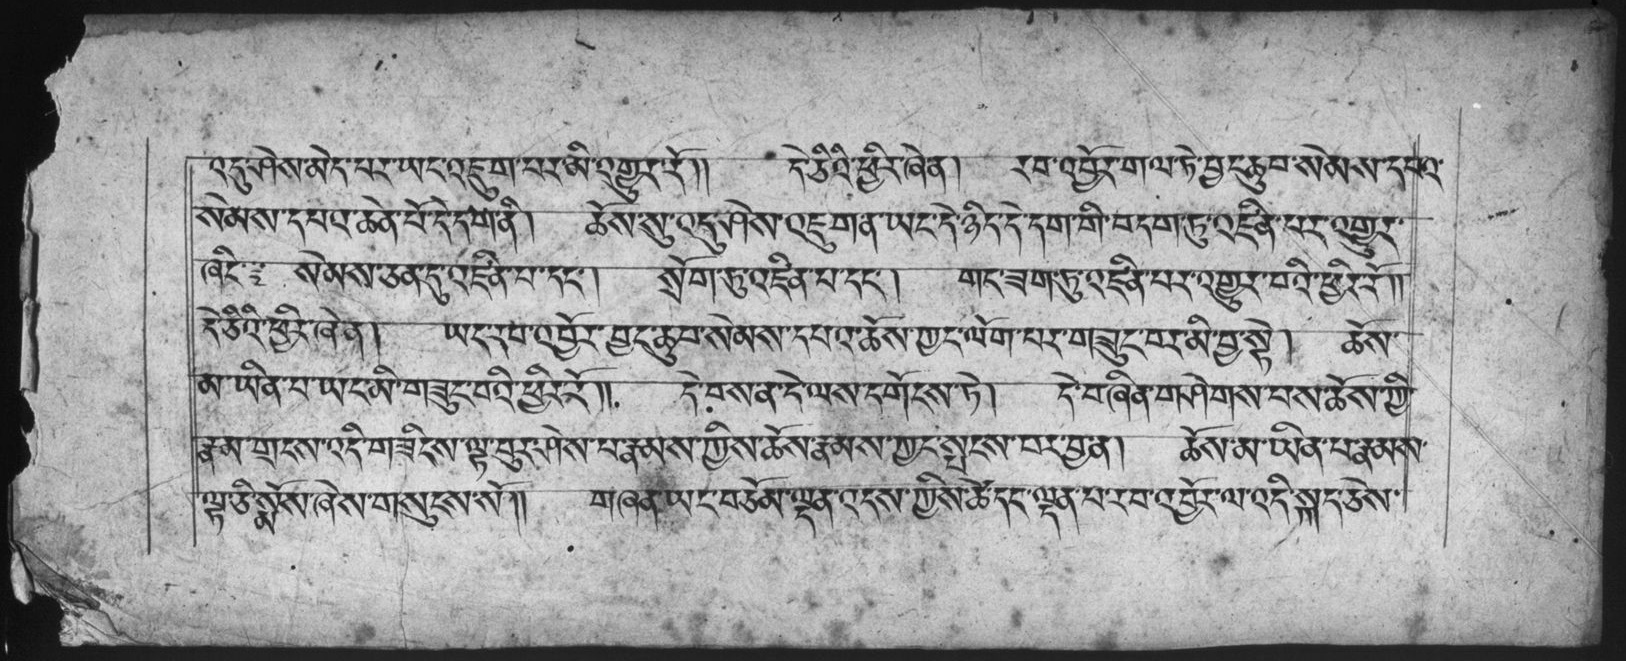 འདུ་ཤེས་མེད་པར་ཡང་འཇུག་པར་མི་འགྱུར་རོ།། དེ་ཅིའི་ཕྱིར་ཞེ་ན། རབ་འབྱོར་གལ་ཏེ་བྱང་ཆུབ་སེམས་དཔའ་
སེམས་དཔའ་ཆེན་པོ་དེ་དག་ནི། ཆོས་སུ་འདུ་ཤེས་འཇུག་ན་ཡང་དེ་ཉིད་དེ་དག་གི་བདག་ཏུ་འཛིན་པར་འགྱུར་
ཞིང་ སེམས་ཅན་དུ་འཛིན་པ་དང་། སྲོག་ཏུ་འཛིན་པ་དང་། གང་ཟག་ཏུ་འཛིན་པར་འགྱུར་བའི་ཕྱིར་རོ།།
དེ་ཅིའི་ཕྱིར་ཞེ་ན། ཡང་རབ་འབྱོར་བྱང་ཆུབ་སེམས་དཔའ་ཆོས་ཀྱང་ལོག་པར་གཟུང་བར་མི་བྱ་སྟེ། ཆོས་
མ་ཡིན་པ་ཡང་མི་གཟུང་བའི་ཕྱིར་རོ།། དེ་བས་ན་དེ་ལས་དགོངས་ཏེ། དེ་བཞིན་གཤེགས་པས་ཆོས་ཀྱི་
རྣམ་གྲངས་འདི་གཟིངས་ལྟ་བུར་ཤེས་པ་རྣམས་ཀྱིས་ཆོས་རྣམས་ཀྱང་སྤང་ས་བར་བྱ་ན། ཆོས་མ་ཡིན་པ་རྣམས་
ལྟ་ཅི་སྨོས་ཞེས་གསུངས་སོ།། གཞན་ཡང་བཅོམ་ལྡན་འདས་ཀྱིས་ཚེ་དང་ལྡན་པ་རབ་འབྱོར་ལ་འདི་སྐད་ཅེས་